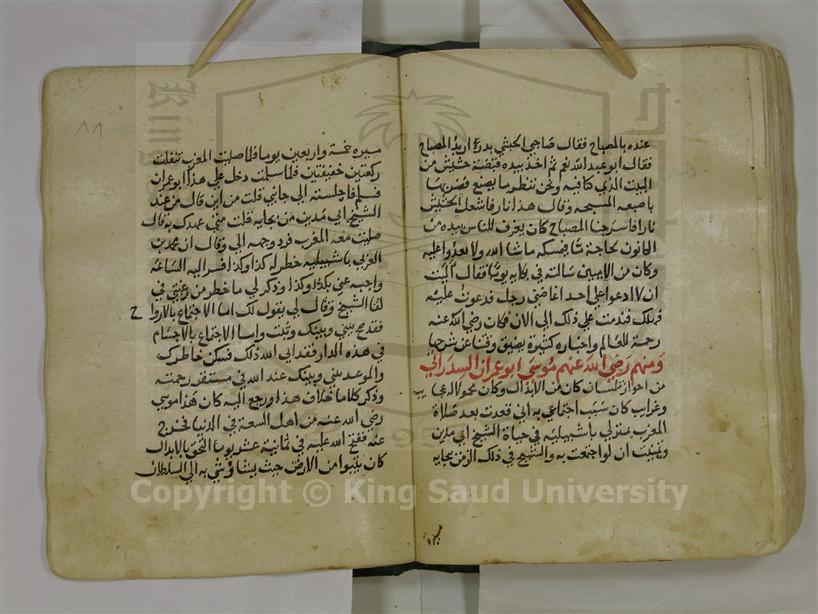 عنده بالمصباح فقال صاحبي الحبشي بدر اريد المصباح
فقال ابو عبد الله نعم ثم اخذ بيده قبضة حشيش من
البيت الذي كنا فيه ونحن ننظر ما يصنع فضربها
باصبعه المسبحة وقال هذا نار فاشعل الحشيش
نارا فاسرجنا المصباح كان يغرف للناس بيده من
الكانون لحاجة نار فيمسكه ما شا الله ولا تعدوا عليه
وكان من الاميين سالته في بكايه يوما فقال آليت
ان لا ادعو على احد اغاضني رجل فدعوت عليه
فهلك فندمت على ذلك الى الان فكان رضي الله عنه
رحمة للعالم واخباره كثيرة يضيق وقتنا عن شرحها
ومنهم رضي الله عنهم موسى ابو عمران السدراني
من احواز تلمسان كان من الابدال وكان مجهولا له عجايب
وغرايب كان سبب اجتماعي به اني قعدت بعد صلاة
المغرب بمنزلي باشبيلية في حياة الشيخ ابي مدين
وتمنيت ان لو اجتمعت به والشيخ في ذلك الزمن ببجاية
مسيرة
١١
مسيرة خمسة واربعين يوما فلما صليت المغرب تنفلت
ركعتين خفيفتين فلما سلمت دخل علي هذا ابو عمران
فسلم فاجلسته الى جانبي قلت من اين قال من عند
الشيخ ابي مدين من بجاية قلت متى عهدك به قال
صليت معه المغرب فرد وجهه الي وقال ان محمد بن
العربي باشبيلية خطر له كذا وكذا فسر اليه الساعة
واخبره عني بكذا وكذا وذكر لي ما خطر من رغبتي في
لقا الشيخ وقال لي يقول لك اما الاجتماع بالارواح
فقد صح بيني وبينك وثبت واما الاجتماع بالاجسام
في هذه الدار فقد ابى الله ذلك فسكن خاطرك
والموعد بيني وبينك عند الله في مستقر رحمته
وذكر كلاما خلاف هذا ورجع اليه كان هذا موسى
رضي الله عنه من اهل السعة في الدنيا فخرج
عنه ففتح الله عليه في ثمانية عشر يوما التحق بالابدال
كان يتبوا من الارض حيث يشا وشي به الى السلطان
Copyright © King Saud University